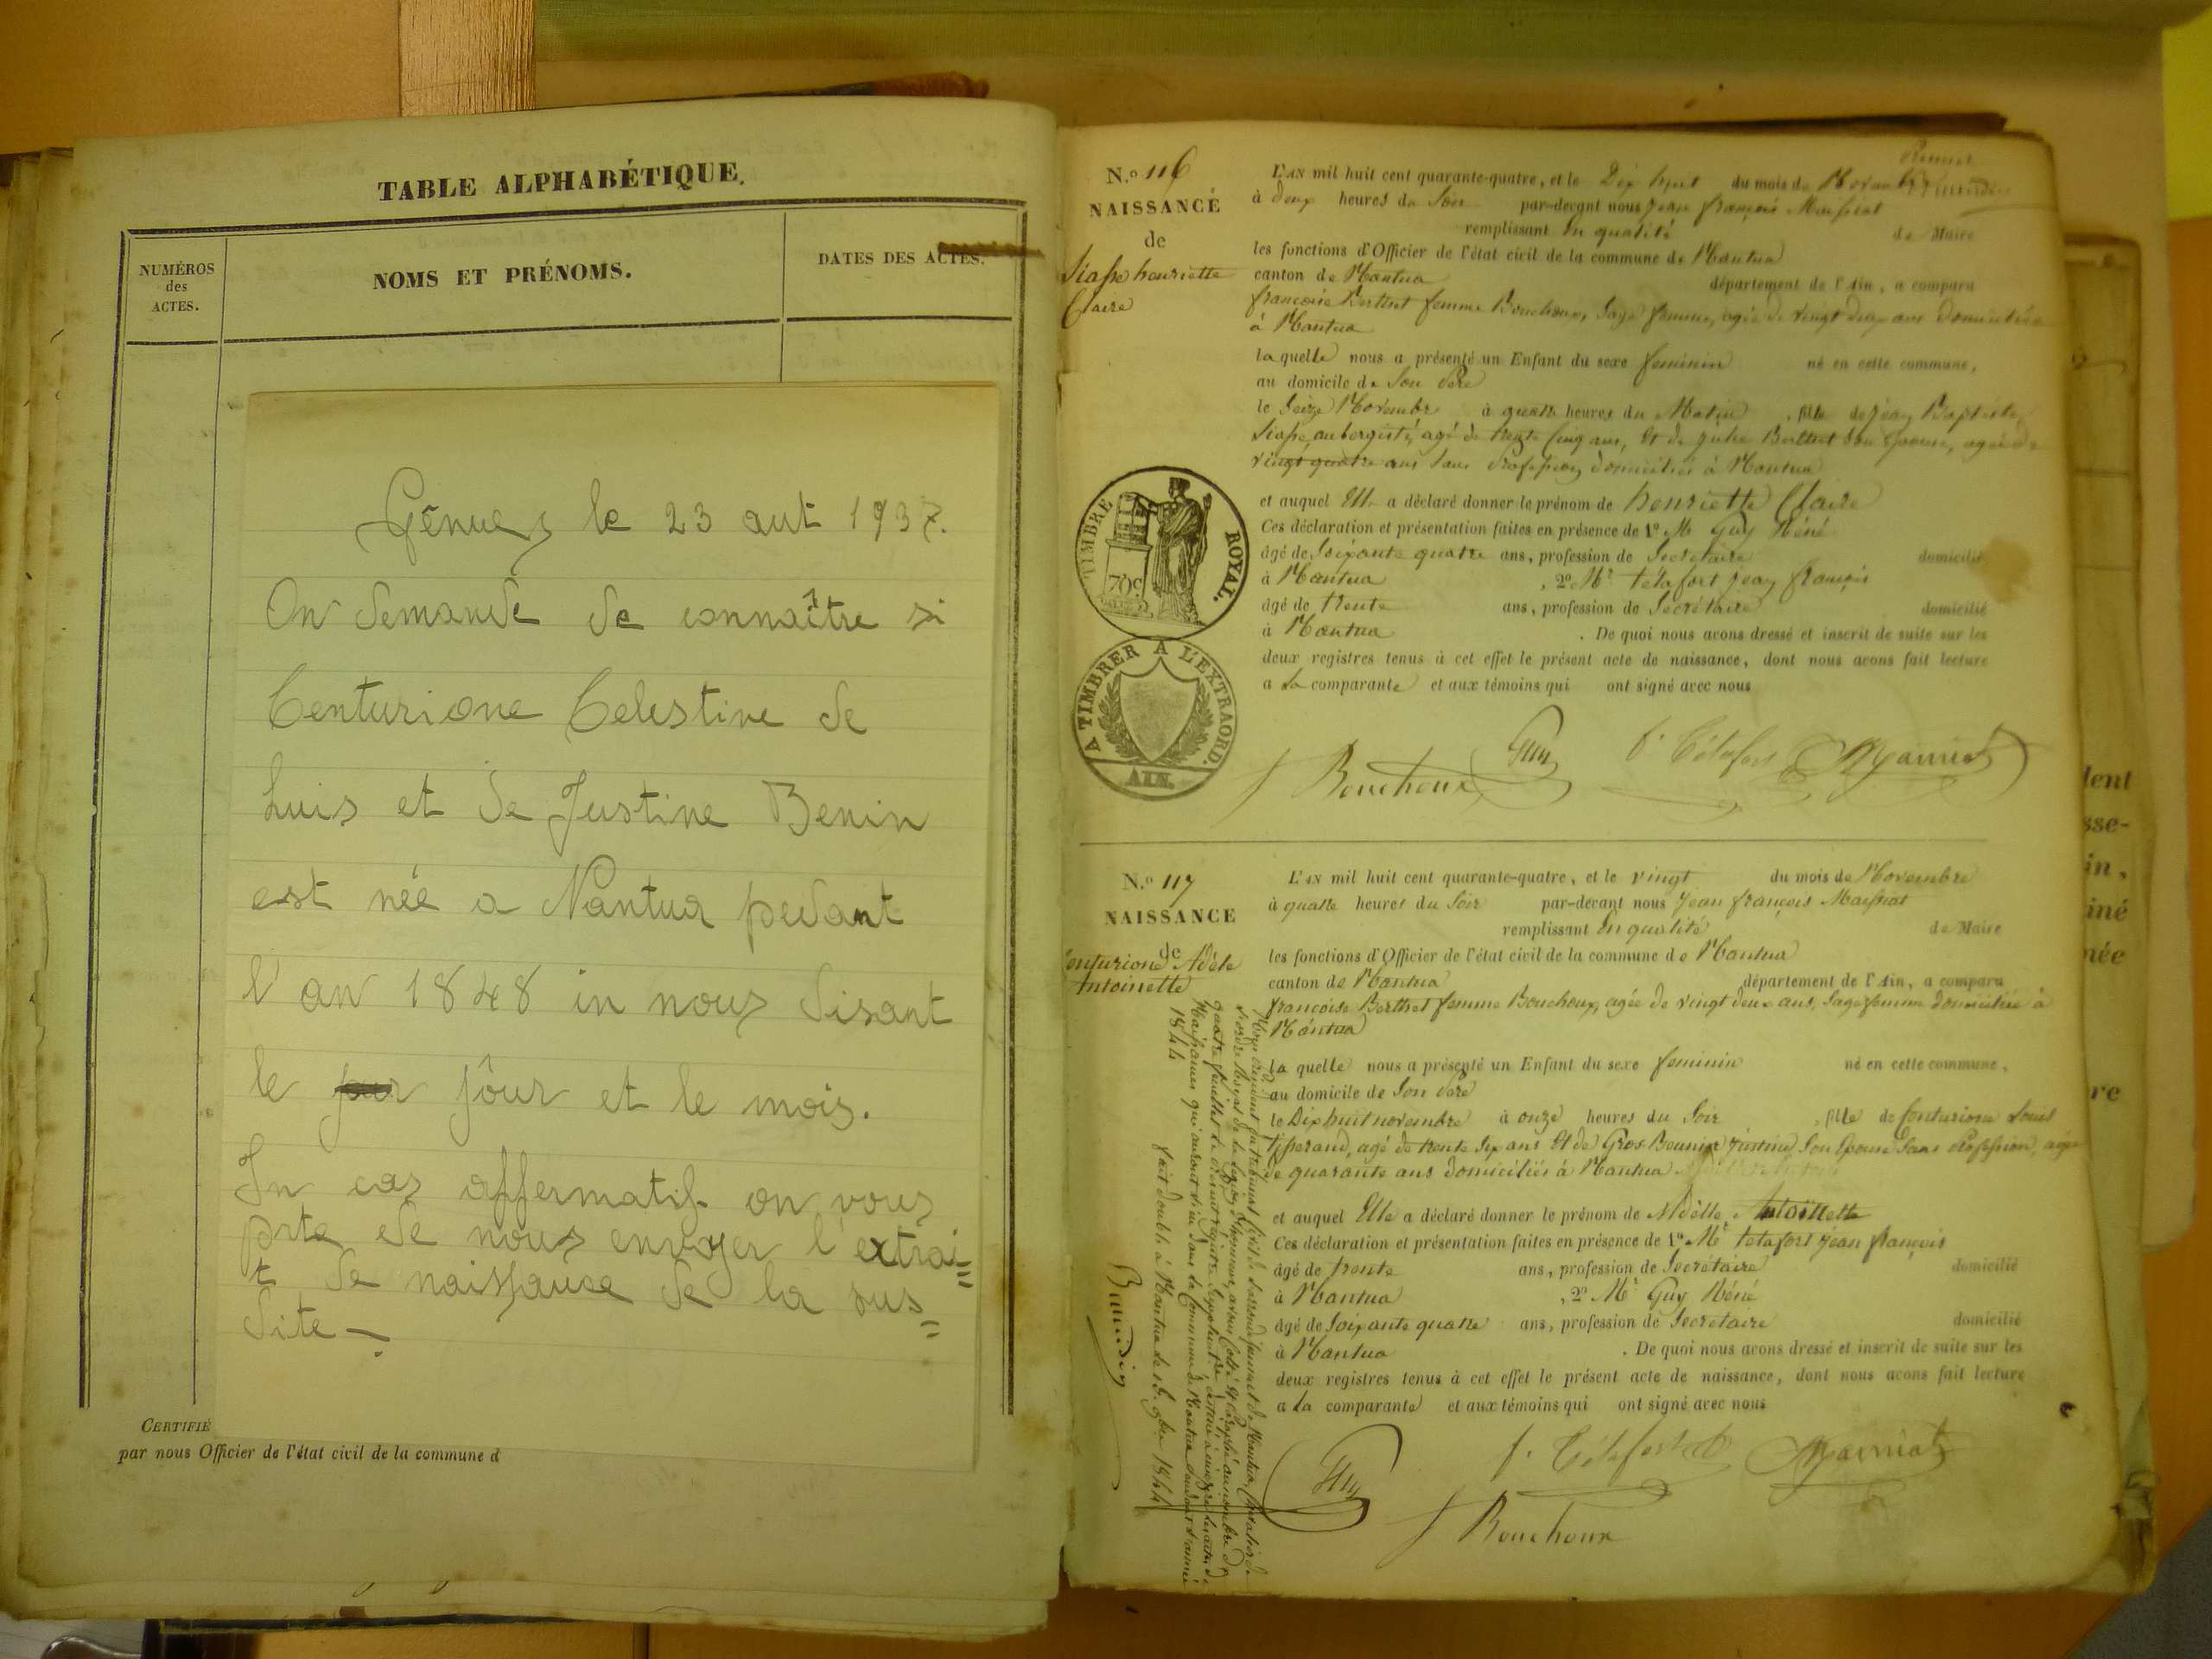 TABLE ALPHABÉTIQUE.
NUMÉROS
des
ACTES.
NOMS ET PRÉNOMS.
DATES DES ACTES.
Gênues le 23 aut 1937.
On demande de connaître si
Centurione Celestine de
Luis et de Justine Benin
est née a Nantua pedant
l'an 1848 in nous disant
le jôur et le mois.
In cas affermatif on vous
prte de nous envoyer l'extrai=
t de naissance de la sus=
dite -
CERTIFIÉ
par nous Officier de l'état civil de la commune d
N.º 116
NAISSANCE
de
Siasse henriette
Claire
L'AN mil huit cent quarante-quatre, et le Dix huit du mois de Novembre
à deux heures du Soir par-devant nous Jean françois Maissiat
remplissant En qualité de Maire
les fonctions d'Officier de l'état civil de la commune de Nantua
canton de Nantua département de l'Ain, a comparu
françoise Berthet femme Bouchoux, Sage femme, agée de vingt deux ans domiciliée
à Nantua
laquelle nous a présenté un Enfant du sexe feminin né en cette commune,
au domicile de Son Père
le Seize Novembre à quatre heures du Matin, fille de Jean Baptiste
Siasse, aubergiste, agé de trente cinq ans, Et de Julie Berthet Son Epouse, agée de
vingt quatre ans Sans Profession domiciliés à Nantua
et auquel Elle a déclaré donner le prénom de henriette Claire
Ces déclaration et présentation faites en présence de 1º Mr Guy Réné
âgé de Soixante quatre ans, profession de Secrétaire domicilié
à Nantua, 2º Mr tétafort Jean françois
âgé de trente ans, profession de Secrétaire domicilié
à Nantua. De quoi nous avons dressé et inscrit de suite sur les
deux registres tenus à cet effet le présent acte de naissance, dont nous avons fait lecture
a La comparante et aux témoins qui ont signé avec nous
TIMBRE ROYAL.
70c
A TIMBRER A L'EXTRAORD.
AIN.
f Bouchoux Guy f. Tétafort
N.º 117
NAISSANCE
de
Centurione Adèle
Antoinette
L'AN mil huit cent quarante-quatre, et le vingt du mois de Novembre
à quatre heures du Soir par-devant nous Jean françois Maissiat
remplissant En qualité de Maire
les fonctions d'Officier de l'état civil de la commune de Nantua
canton de Nantua département de l'Ain, a comparu
françoise Berthet femme Bouchoux, agée de vingt deux ans, Sage femme domiciliée à
Nantua
La quelle nous a présenté un Enfant du sexe feminin né en cette commune,
au domicile de Son Père
le Dix huit novembre à onze heures du Soir, fille de Centurione Louis
agé de trente Six ans Et de Gros Justine, Son Epouse Sans Profession, agée
de quarante ans domiciliés à Nantua
et auquel Elle a déclaré donner le prénom de Adèlle Antoinette
Ces déclaration et présentation faites en présence de 1º Mr tétafort Jean françois
âgé de trente ans, profession de Secrétaire domicilié
à Nantua, 2º Mr Guy Réné
âgé de Soixante quatre ans, profession de Secrétaire domicilié
à Nantua. De quoi nous avons dressé et inscrit de suite sur les
deux registres tenus à cet effet le présent acte de naissance, dont nous avons fait lecture
a La comparante et aux témoins qui ont signé avec nous
Guy f. Tétafort
f Bouchoux
1844
fait double à Nantua le
lent
sse-
in,
iné
née
re